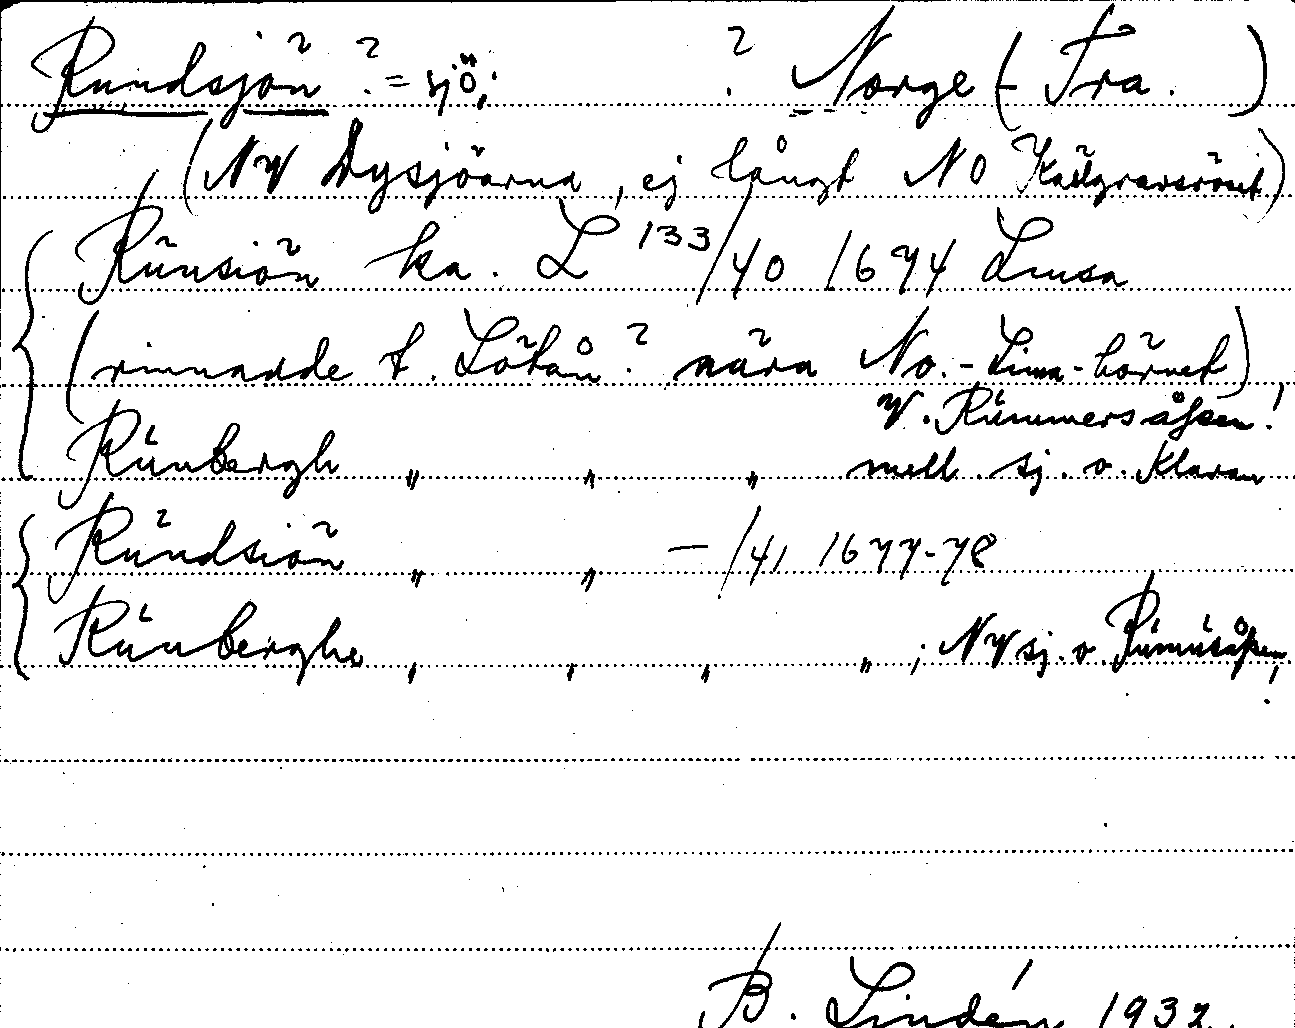 Rundsjön ? = sjö; ? Norge (- Tra. )
(NV Dysjöarna, ej långt NO Källgravsröset)
Rünsiön ka. L 133/40 1674 Limsa
(rinnande t. Lötån? nära No.-Lima-hörnet)
V. Rümmersåhsen!
Rünbergh " " " mell. sj. o. Klaran
Ründsiön " " - /41 1677-78
Rünberghe " " " " ; NV sj. o. Rümüsåhsen,
B. Lindén 1932.